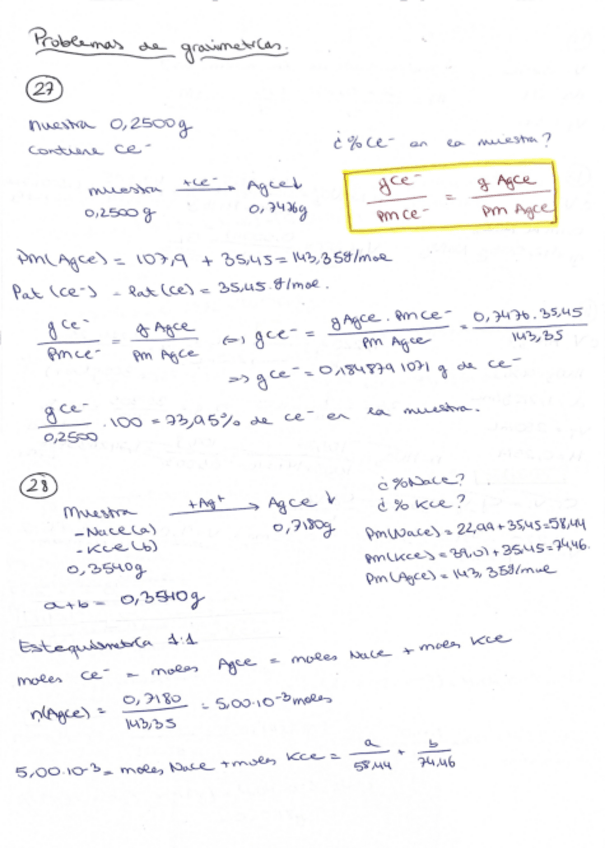 Problemas de gravimetrías.
27
muestra 0,2500g
contiene Cl⁻
¿% Cl⁻ en la muestra?
muestra +Cl⁻ → AgCl↓
0,2500g 0,7476g
gCl⁻/PmCl⁻ = g AgCl/Pm AgCl
Pm(AgCl) = 107,9 + 35,45 = 143,35g/mol
Pat (Cl⁻) = Pat (Cl) = 35,45 g/mol.
gCl⁻/PmCl⁻ = g AgCl/Pm AgCl ⇔ gCl⁻ = gAgCl · PmCl⁻/Pm AgCl = 0,7476 · 35,45/143,35
⇒ gCl⁻ = 0,184879 1071 g de Cl⁻
gCl⁻/0,2500 · 100 = 73,95% de Cl⁻ en la muestra.
28
Muestra +Ag⁺ → AgCl↓
- NaCl (a) 0,7180g
- KCl (b)
0,3540g
a+b = 0,3540g
¿%NaCl?
¿% KCl?
Pm(NaCl) = 22,99 + 35,45 = 58,44
Pm(KCl) = 39,01 + 35,45 = 74,46.
Pm(AgCl) = 143,35g/mol
Estequiometría 1:1
moles Cl⁻ = moles AgCl = moles NaCl + moles KCl
n(AgCl) = 0,7180/143,35 = 5,00·10⁻³ moles
5,00·10⁻³ = moles NaCl + moles KCl = a/58,44 + b/74,46